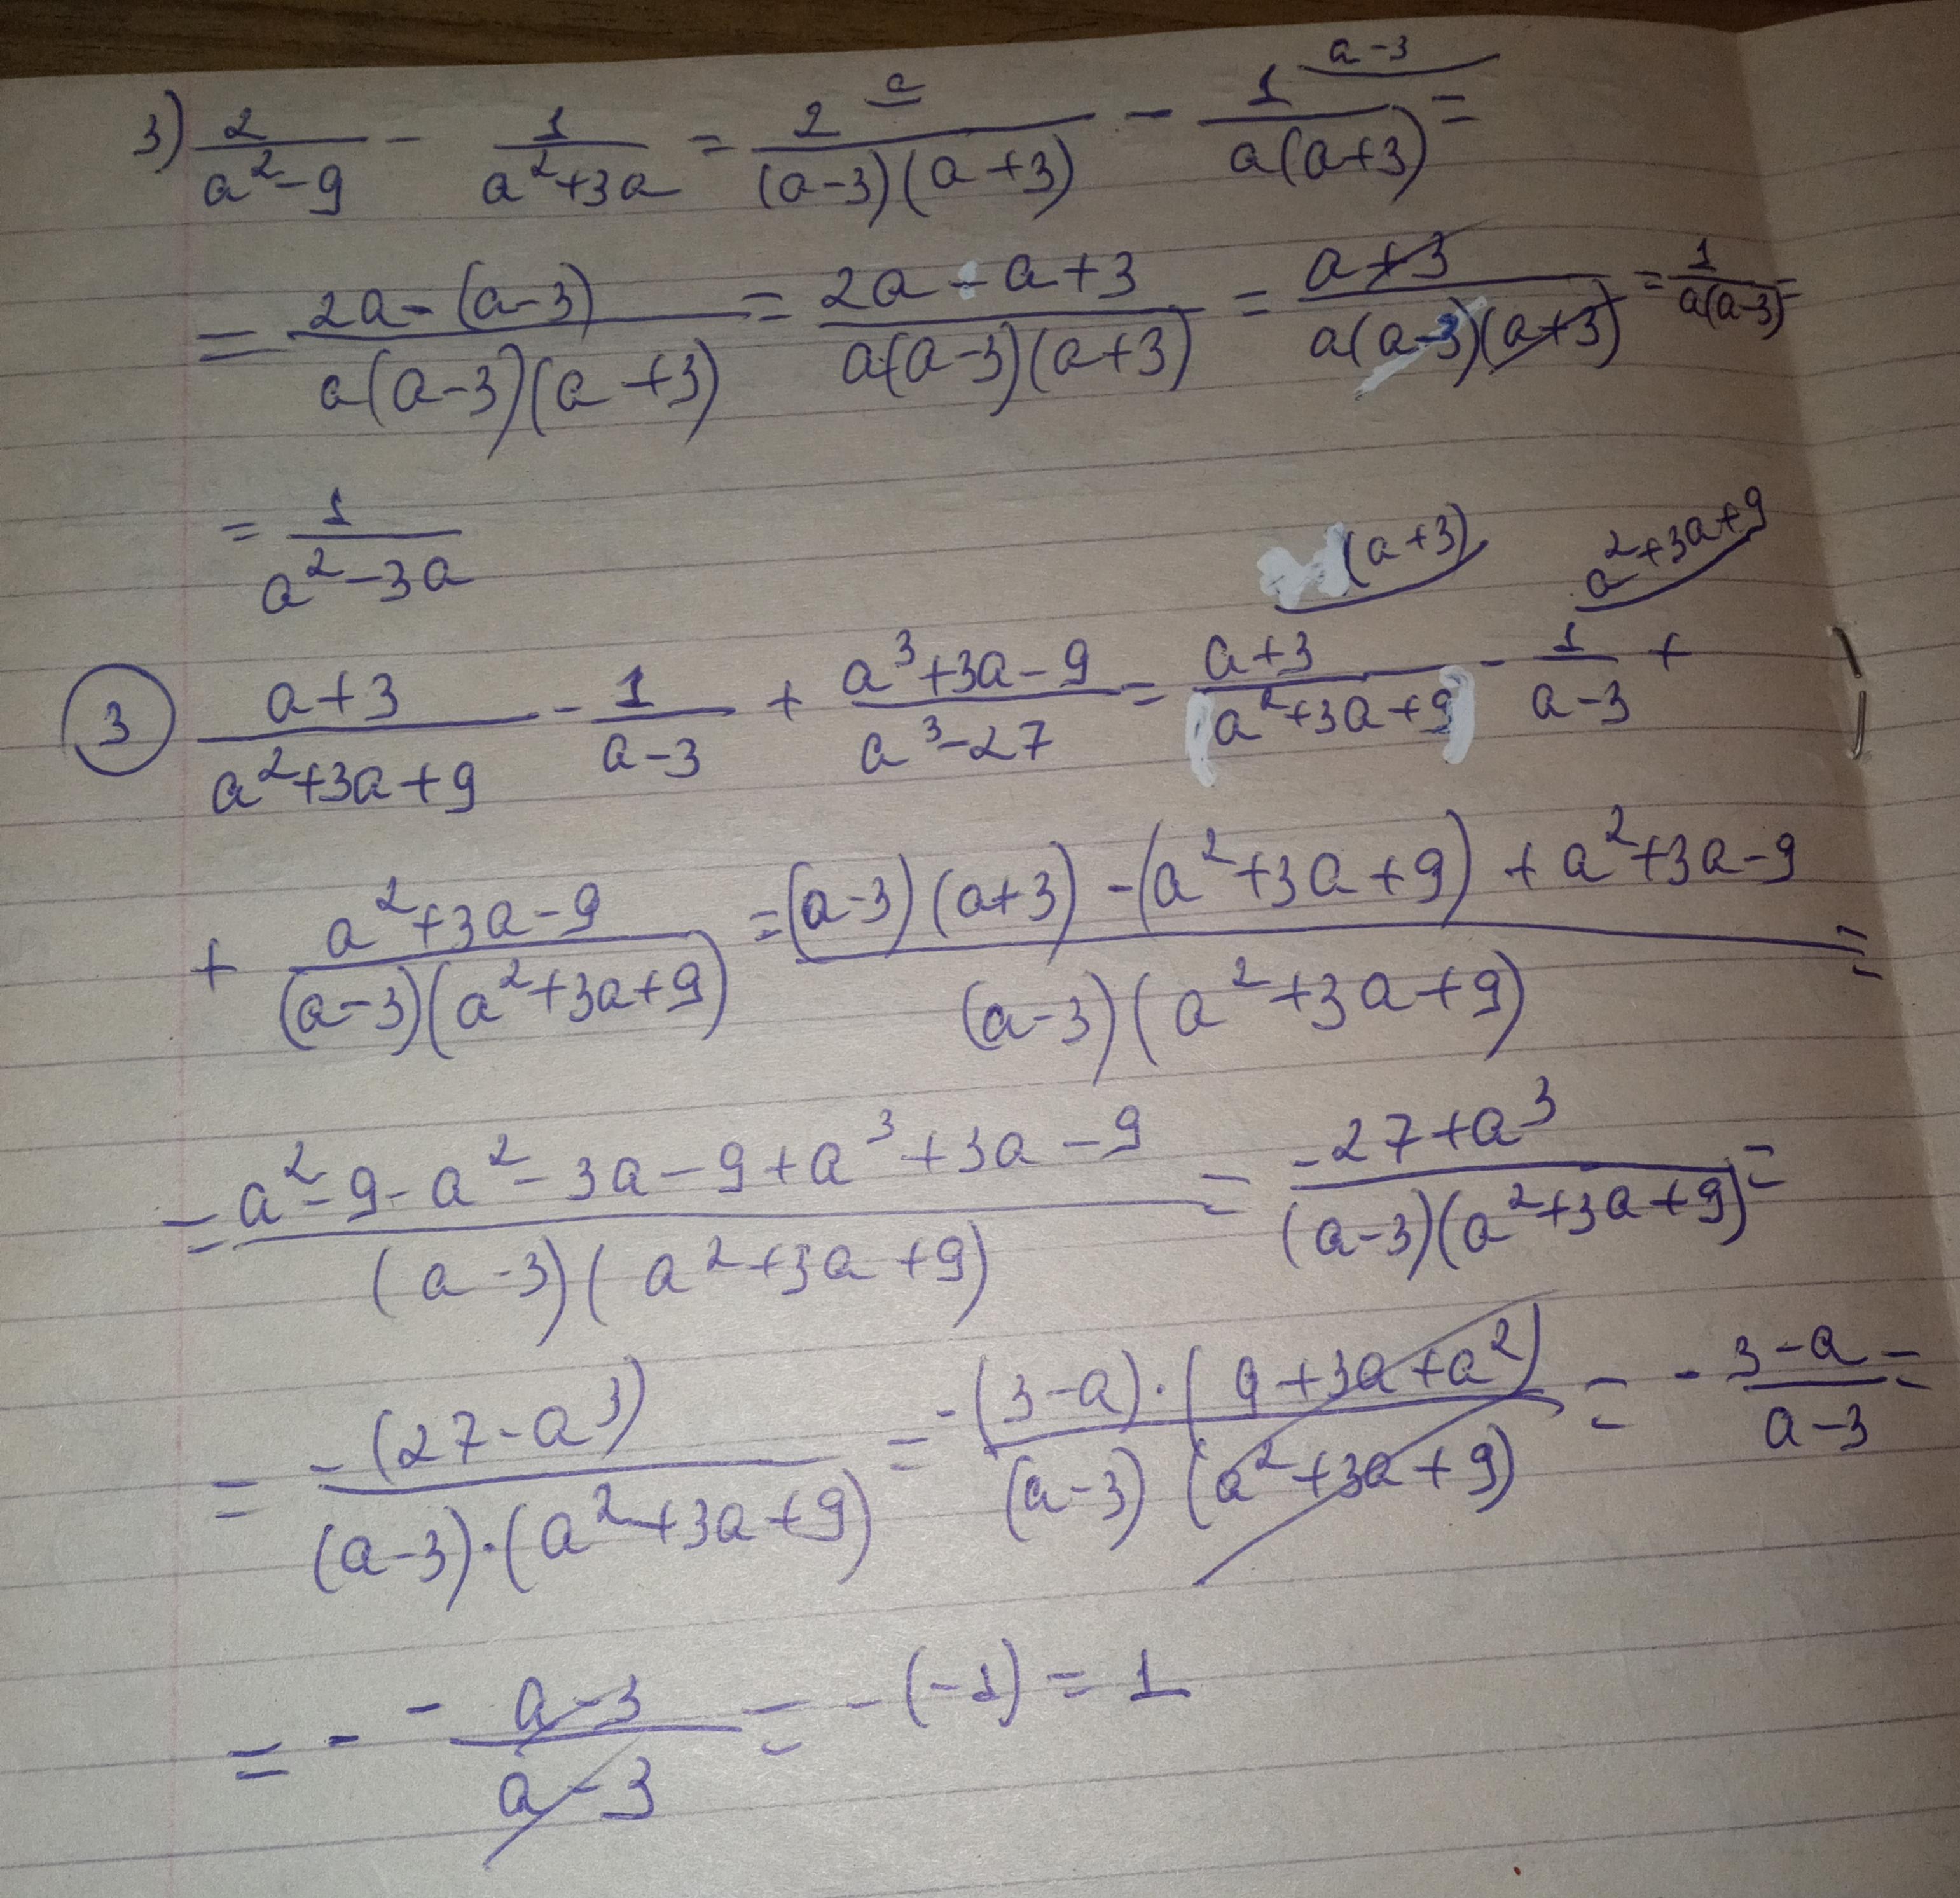 3) 2/(a²-9) - 1/(a²+3a) = 2/((a-3)(a+3)) a - 1/(a(a+3)) a-3 =
= (2a-(a-3))/(a(a-3)(a+3)) = (2a-a+3)/(a(a-3)(a+3)) = (a+3)/(a(a-3)(a+3)) = 1/(a(a-3)) =
= 1/(a²-3a)
(a+3) a²+3a+9
3 (a+3)/(a²+3a+9) - 1/(a-3) + (a³+3a-9)/(a³-27) = (a+3)/(a²+3a+9) - 1/(a-3) +
+ (a²+3a-9)/((a-3)(a²+3a+9)) = ((a-3)(a+3)-(a²+3a+9)+a²+3a-9)/((a-3)(a²+3a+9)) =
= (a²-9-a²-3a-9+a³+3a-9)/((a-3)(a²+3a+9)) = (-27+a³)/((a-3)(a²+3a+9)) =
= -(27-a³)/((a-3)·(a²+3a+9)) = -(3-a)·(9+3a+a²)/((a-3)(a²+3a+9)) = - (3-a)/(a-3) =
= - - (a-3)/(a-3) = -(-1) = 1